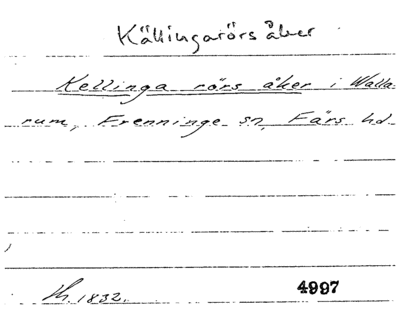 Källingarörs åker
Kellinga rörs åker i Walla-
rum, Frenninge sn, Färs hd
1832.
4997